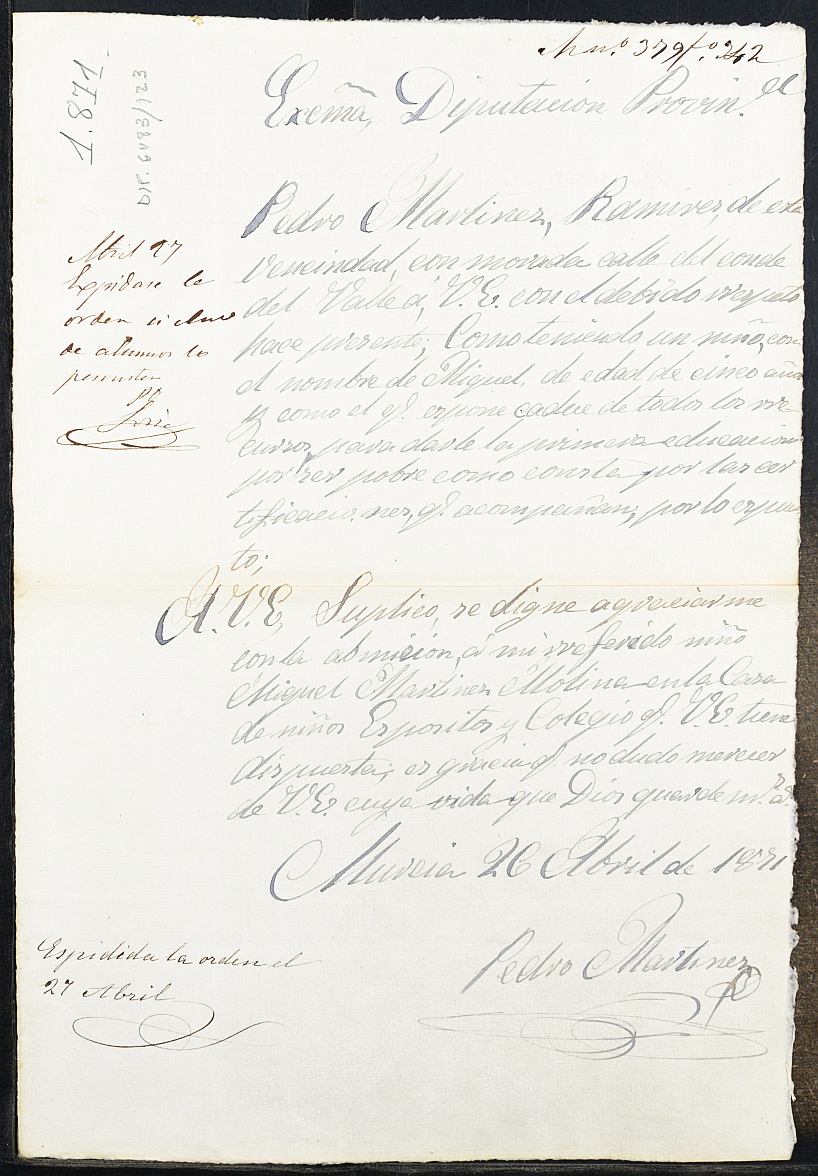 A nº 379 fº 242
1.871
DIP. 6483/123
Excmã, Diputacion Provin.al
Pedro Martinez, Ramirez, de esta
veneindad, con morada calle del conde
del Valle á, V.E. con el debido rrespeto
hace presente; Como teniendo un niño, con
el nombre de Miguel, de edad de cinco años
y como el q.e espone cadue de todos los rre
cursos, para darle la primera educacion
por ser pobre como consta por las cer
tificacio.nes, q.e acompañan, por lo espues
to;
A. V.E, Suplico, se digne agraciarme
con la admicion, á mi rreferido niño
Miguel Martinez Molina en la Casa
de niños Espositos y Colegio q.e V.E. tiene
dispuesta; es gracia q.e no dudo merecer
de V.E. cuya vida que Dios guarde m.s a.s
Murcia 26 Abril de 1871
Pedro Martinez
Abril 27
Espidase la
orden si el nº
de alumnos lo
permiten
Espidida la orden el
27 Abril